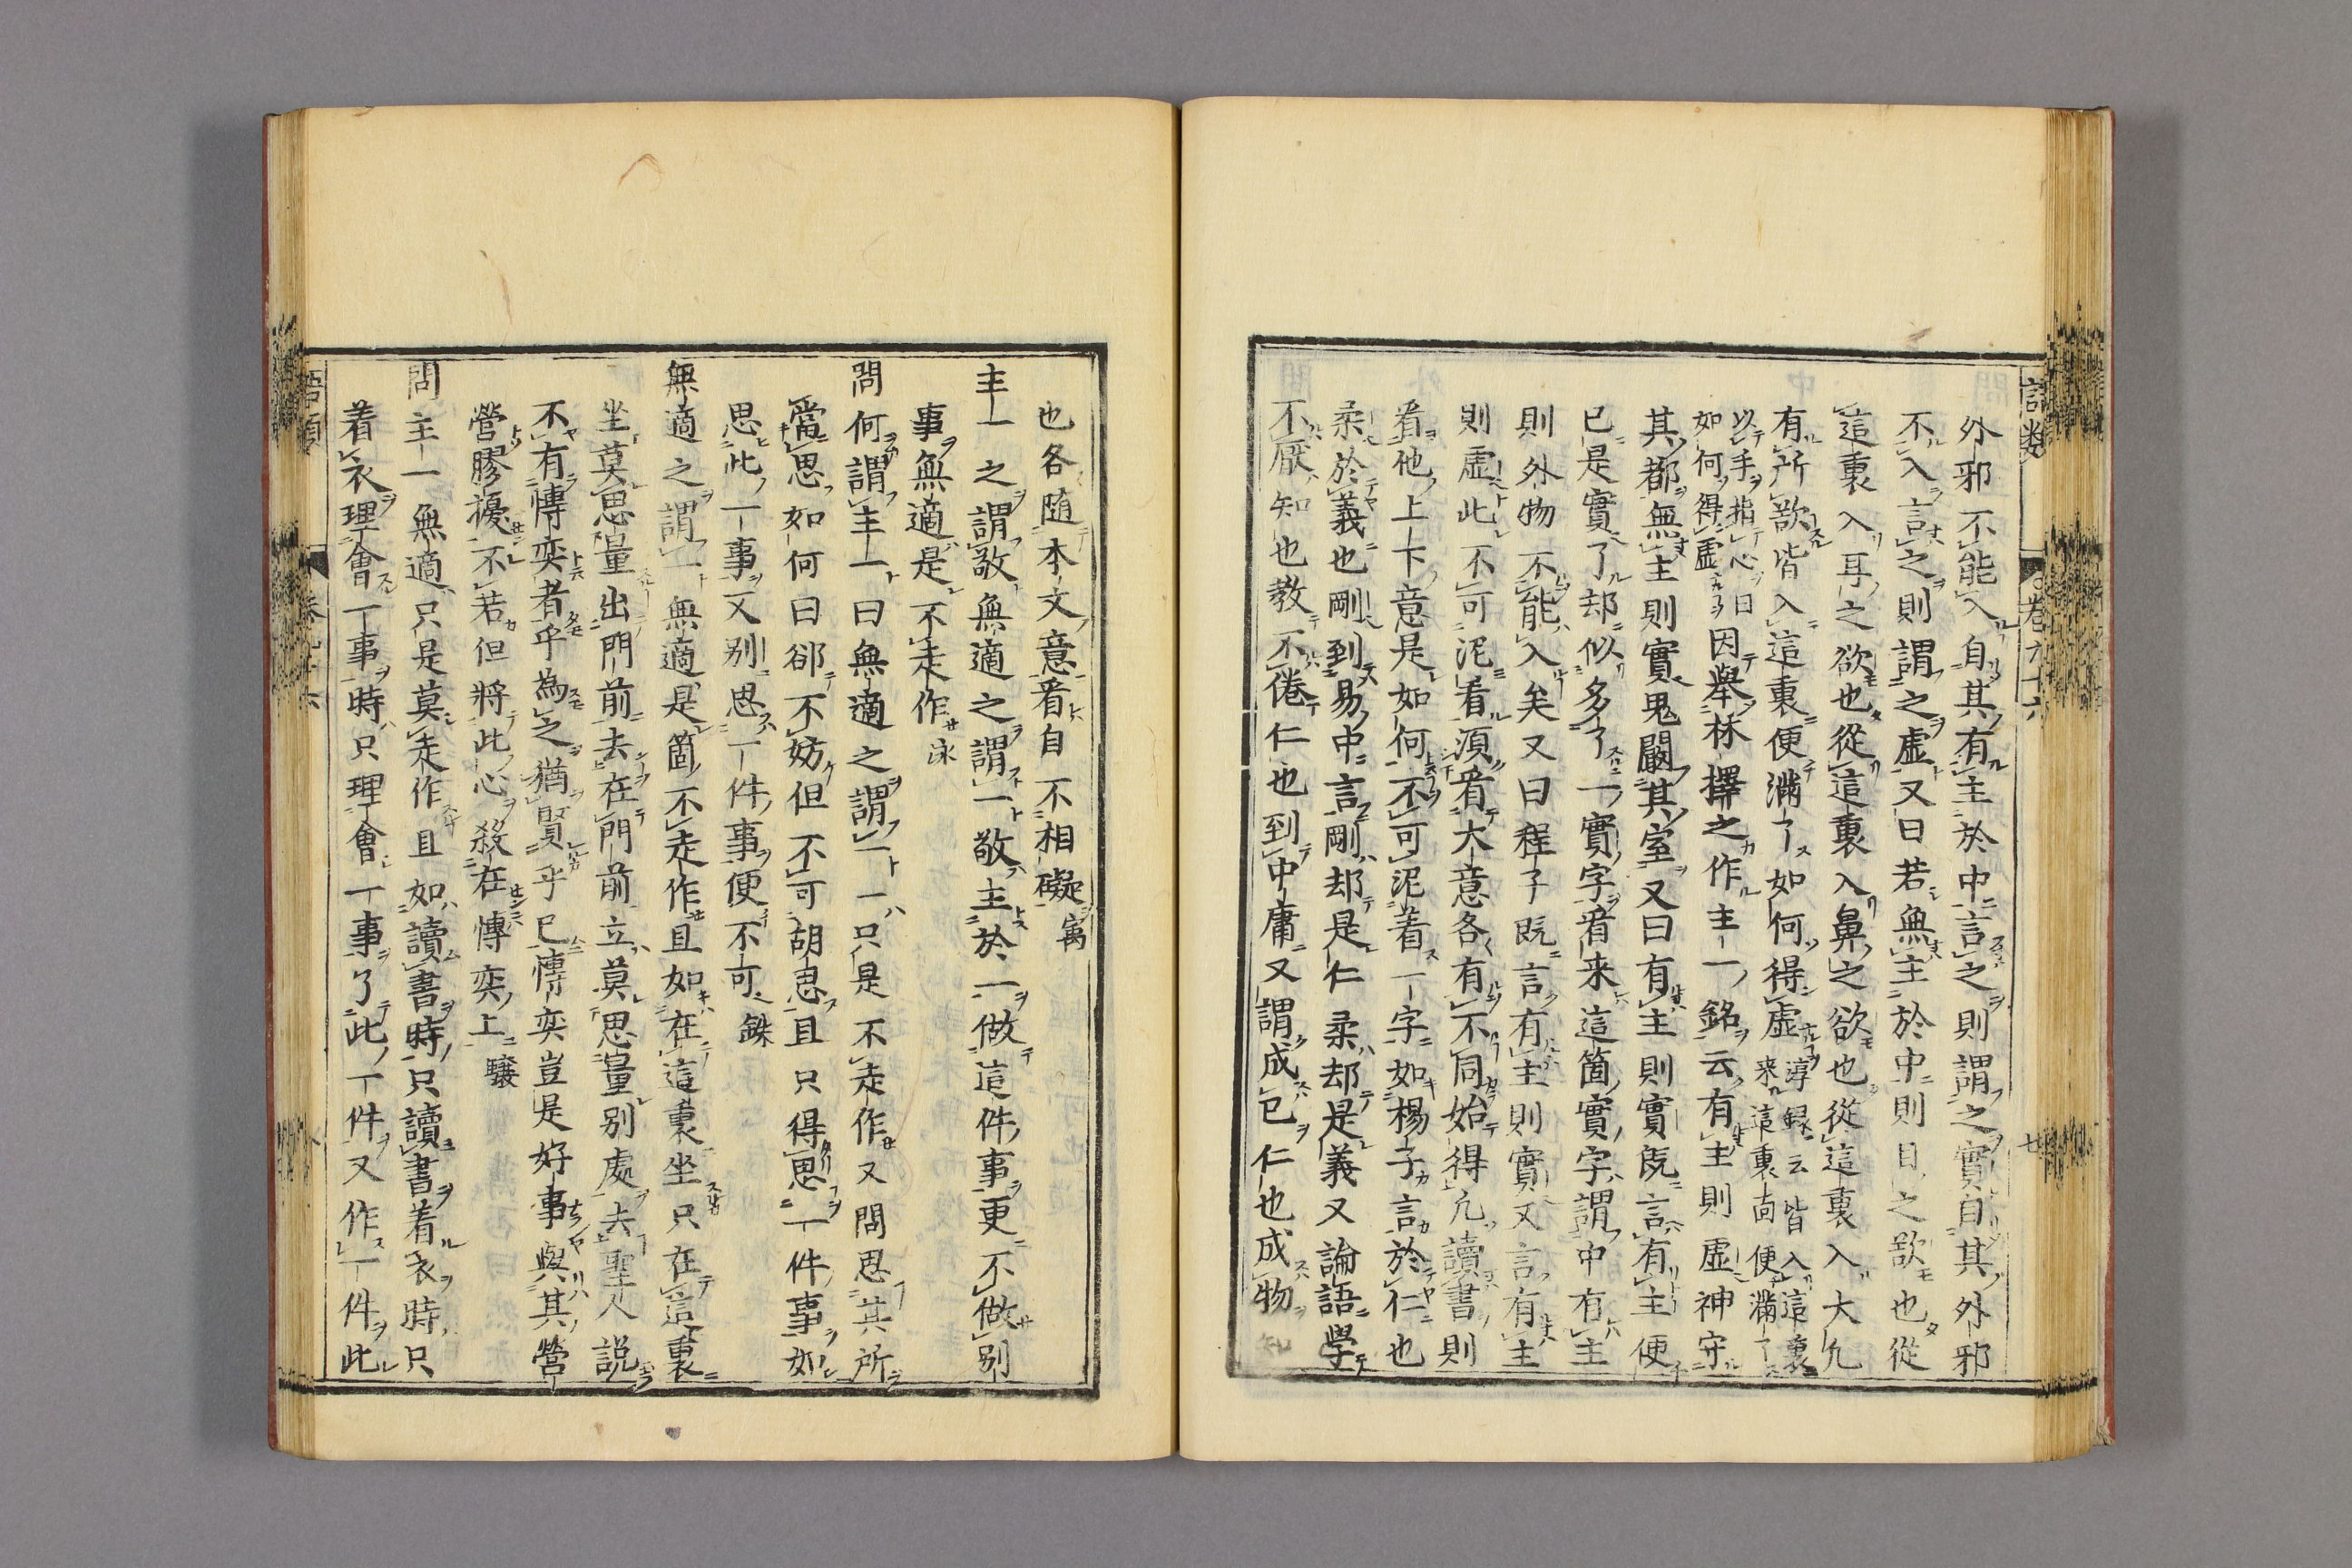 外邪不能入自其有主於中言之則謂之實自其外邪
不入言之則謂之虛又曰若無主於中則目之欲也從
這裏入耳之欲也從這裏入鼻之欲也從這裏入大凡
有所欲皆入這裏便滿了如何得虛淳録云皆入這裏
来這裏面便滿了
以手指心曰
如何得虛因舉林擇之作主一銘云有主則虛神守
其都無主則實鬼闞其室又曰有主則實既言有主便
已是實了却似多了一實字看来這箇實字謂中有主
則外物不能入矣又曰程子既言有主則實又言有主
則虛此不可泥看須看大意各有不同始得凡讀書則
看他上下意是如何不可泥着一字如楊子言於仁也
柔於義也剛到易中言剛却是仁柔却是義又論語學
不厭知也教不倦仁也到中庸又謂成已仁也成物知
也各隨本文意看自不相礙㝢
主一之謂敬無適之謂一敬主於一做這件事更不做别
事無適是不走作泳
問何謂主一曰無適之謂一一只是不走作又問思其所
當思如何曰却不妨但不可胡思且只得思一件事如
思此一事又别思一件事便不可銖
無適之謂一無適是箇不走作且如在這裏坐只在這裏
坐莫思量出門前去在門前立莫思量别處去聖人説
不有慱奕者乎為之猶賢乎已慱奕豈是好事與其營
營膠擾不若但將此心殺在慱奕上驤
問主一無適只是莫走作且如讀書時只讀書着衣時只
着衣理會一事時只理會一事了此一件又作一件此
語類
卷九十六
廿